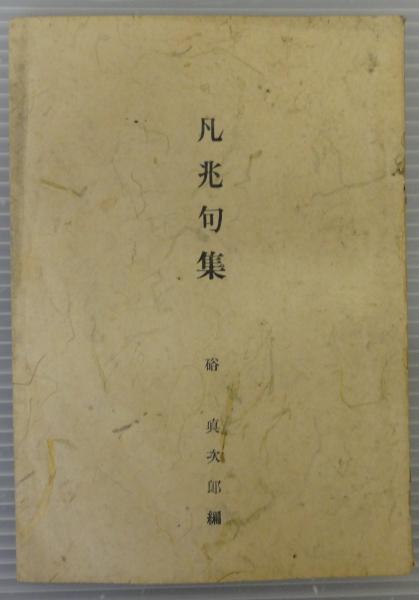 凡兆句集
硲 真次郎編